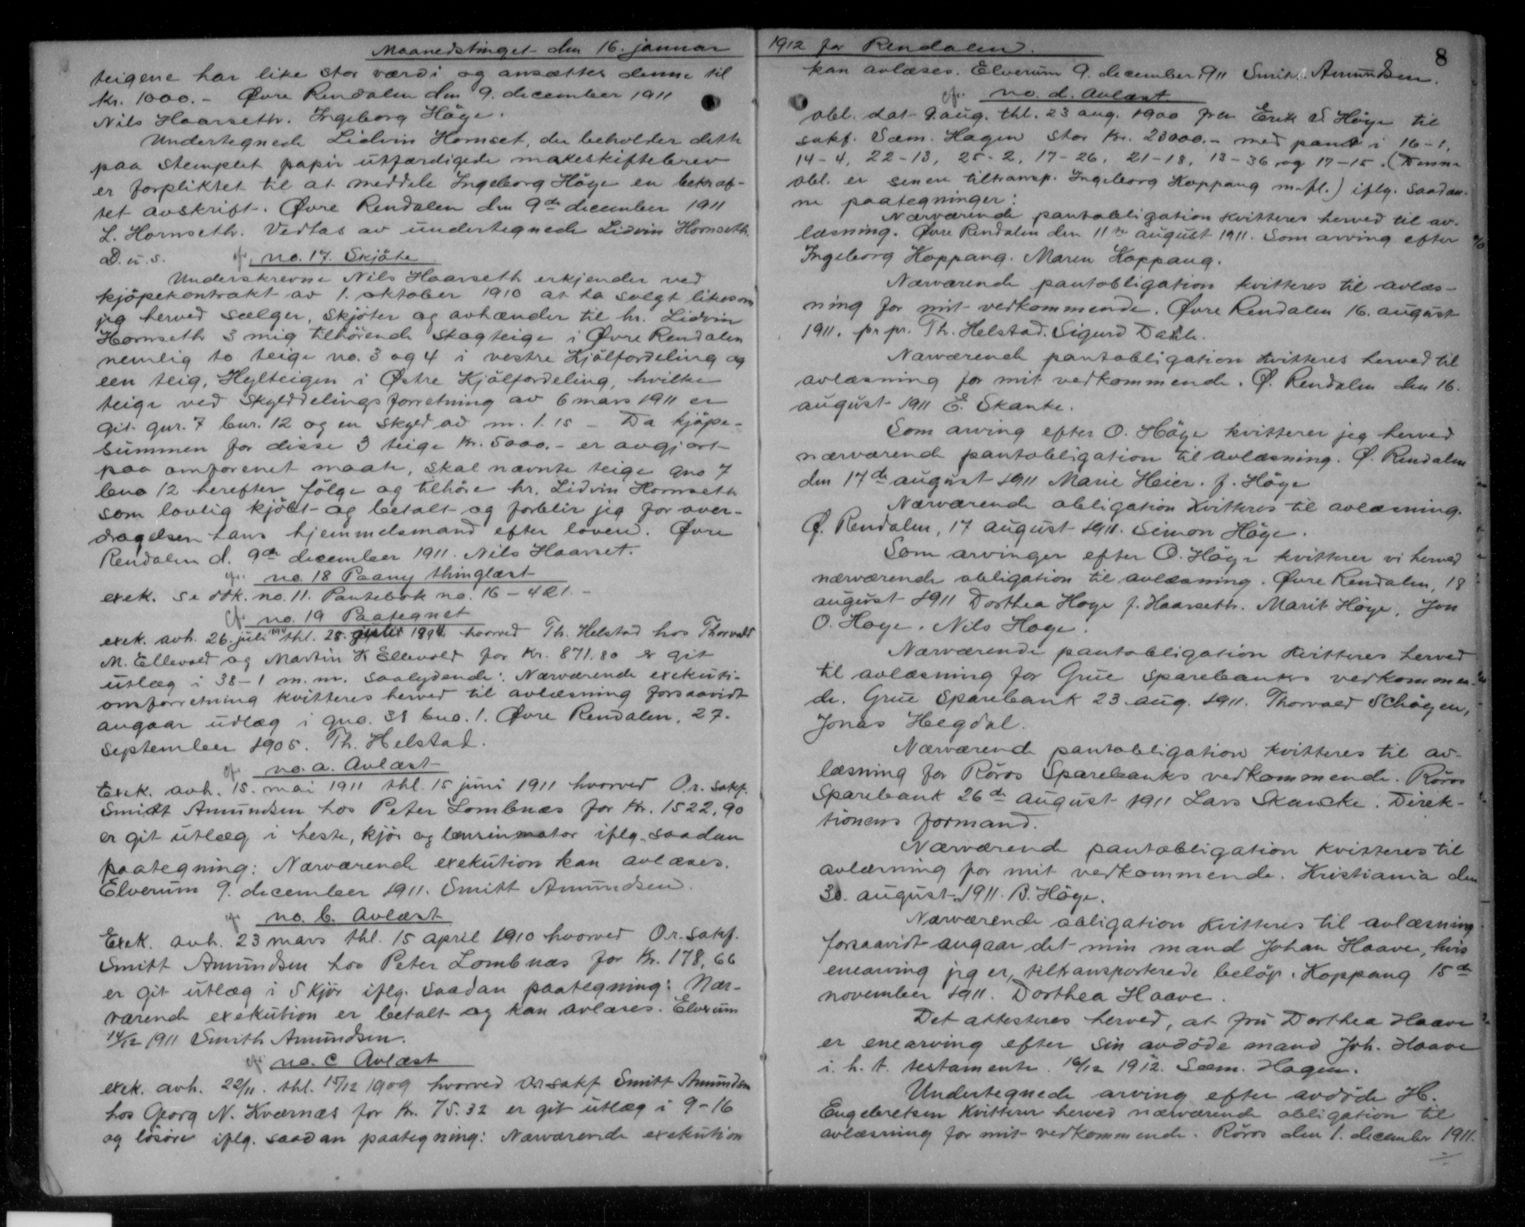 Maanedstinget den 16. januar
teigene har like stor værdi og ansættes denne til
Kr. 1000.- Øvre Rendalen den 9. december 1911
Nils Haarseth. Ingeborg Höye.
Undertegnede Lidvin Hornset, der beholder dette
paa stemplet papir utfærdigede makeskiftebrev
er forpliktet til at meddele Ingeborg Höye en bekræf-
tet avskrift. Øvre Rendalen den 9de december 1911
L. Hornseth. Vedtas av undertegnede Lidvin Hornseth.
D.u.s. no. 17. Skjöte
Underskrevne Nils Haarseth erkjender ved
kjöpekontrakt av 1. oktober 1910 at ha solgt likesom
jeg herved sælger, skjöter og avhænder til hr. Lidvin
Hornseth 3 mig tilhörende skogteige i Øvre Rendalen
nemlig to teige no. 3 og 4 i vestre Kjölfordeling og
een teig, Hylteigen i Østre Kjölfordeling, hvilke
teige ved Skylddelingsforretning av 6 mars 1911 er
git gnr. 7 bnr. 12 og en skyld av m. 1.15 - Da kjöpe-
summen for disse 3 teige Kr. 5000.- er avgjort
paa omforenet maate, skal nævnte teige gno 7
bno 12 herefter fölge og tilhöre hr. Lidvin Hornseth
som lovlig kjöbt og betalt og forblir jeg for over-
dragelsen hans hjemmelsmand efter loven. Øvre
Rendalen d. 9de december 1911. Nils Haarset.
no. 18 Paany thinglæst
exek. se dok. no. 11. Pantebok no. 16 - 421 -
no. 19 Paategnet
exek. avh. 26. juli thl. 28. 1894 hvorved Th. Helstad hos Thorvald
M. Ellevold og Martin K Ellevold for Kr. 871.80 er git
utlæg i 38-1 m.m. saalydende: Nærværende exekuti-
onsforretning kvitteres herved til avlæsning forsaavidt
angaar udlæg i gno. 38 bno. 1. Øvre Rendalen, 27.
september 1905. Th. Helstad.
no. a. Avlæst
Exek. avh. 15. mai 1911 thl. 15 juni 1911 hvorved O.r. sakf.
Smidt Amundsen hos Peter Lombnæs for Kr. 1522,90
er git utlæg i heste, kjör og iflg. saadan
paategning: Nærværende exekution kan avlæses.
Elverum 9. december 1911. Smitt Amundsen.
no. b. Avlæst
Exek. avh. 23 mars thl. 15 april 1910 hvorved O.r. sakf.
Smitt Amundsen hos Peter Lombnæs for Kr. 178,66
er git utlæg i 5 kjör iflg. saadan paategning: Nær-
værende exekution er betalt og kan avlæses. Elverum
14/12 1911 Smith Amundsen.
no. c Avlæst
exek. avh. 22/11 thl. 15/12 1909 hvorved O.r sakf Smitt Amundsen
hos Georg N. Kværnæs for Kr. 75.32 er git utlæg i 9-16
og lösöre iflg. saadan paategning: Nærværende exekution
1912 for Rendalen.
8
kan avlæses. Elverum 9. december 1911 Smitt Amundsen.
no. d. Avlæst
obl. dat. 9 aug. thl. 23 aug. 1900 fra Erik S Höye til
sakf. Sæm. Hagen stor Kr. 20000.- med pant i 16-1,
14-4, 22-13, 25-2, 17-26, 21-18, 13-36 og 17-15. (Denne
obl. er senere tiltransp. Ingeborg Koppang m.fl.) iflg. saadan-
ne paategninger:
Nærværende pantobligation kvitteres herved til av-
læsning. Øvre Rendalen den 11te august 1911. Som arving efter
Ingeborg Koppang. Maren Koppang.
Nærværende pantobligation kvitteres til avlæs-
ning for mit vedkommende. Øvre Rendalen 16. august
1911. pr pr. Th. Helstad. Sigurd Dahl.
Nærværende pantobligation kvitteres herved til
avlæsning for mit vedkommende. Ø. Rendalen den 16.
august 1911 E. Skanke.
Som arving efter O. Höye kvitterer jeg herved
nærværende pantobligation til avlæsning. Ø. Rendalen
den 17de august 1911 Marie Heier. f. Höye
Nærværende obligation kvitteres til avlæsning.
Ø. Rendalen, 17 august 1911. Simon Höye.
Som arvinger efter O. Höye kvitterer vi herved
nærværende obligation til avlæsning. Øvre Rendalen, 18
august 1911 Dorthea Hoye f. Haarseth. Marit Höye, Jon
O. Hoye. Nils Hoye.
Nærværende pantobligation kvitteres herved
til avlæsning for Grue Sparebanks vedkommen-
de. Grue Sparebank 23 aug. 1911. Thorvald Schøyen,
Jonas Hegdal.
Nærværende pantobligation kvitteres til av-
læsning for Röros Sparebanks vedkommende. Röros
Sparebank 26de august 1911 Lars Skancke. Direk-
tionens formand.
Nærværende pantobligation kvitteres til
avlæsning for mit vedkommende. Kristiania den
30. august 1911. B. Höye.
Nærværende obligation kvitteres til avlæsning
forsaavidt angaar det min mand Johan Haave, hvis
enearving jeg er, tiltransporterede belöp. Koppang 15de
november 1911. Dorthea Haave.
Det attesteres herved, at fru Dorthea Haave
er enearving efter sin avdöde mand Joh. Haave
i. h. t. testamente. 16/12 1912. Sæm. Hagen.
Undertegnede arving efter avdöde H.
Engebretsen kvitterer herved nærværende obligation til
avlæsning for mit vedkommende. Röros den 1. december 1911.